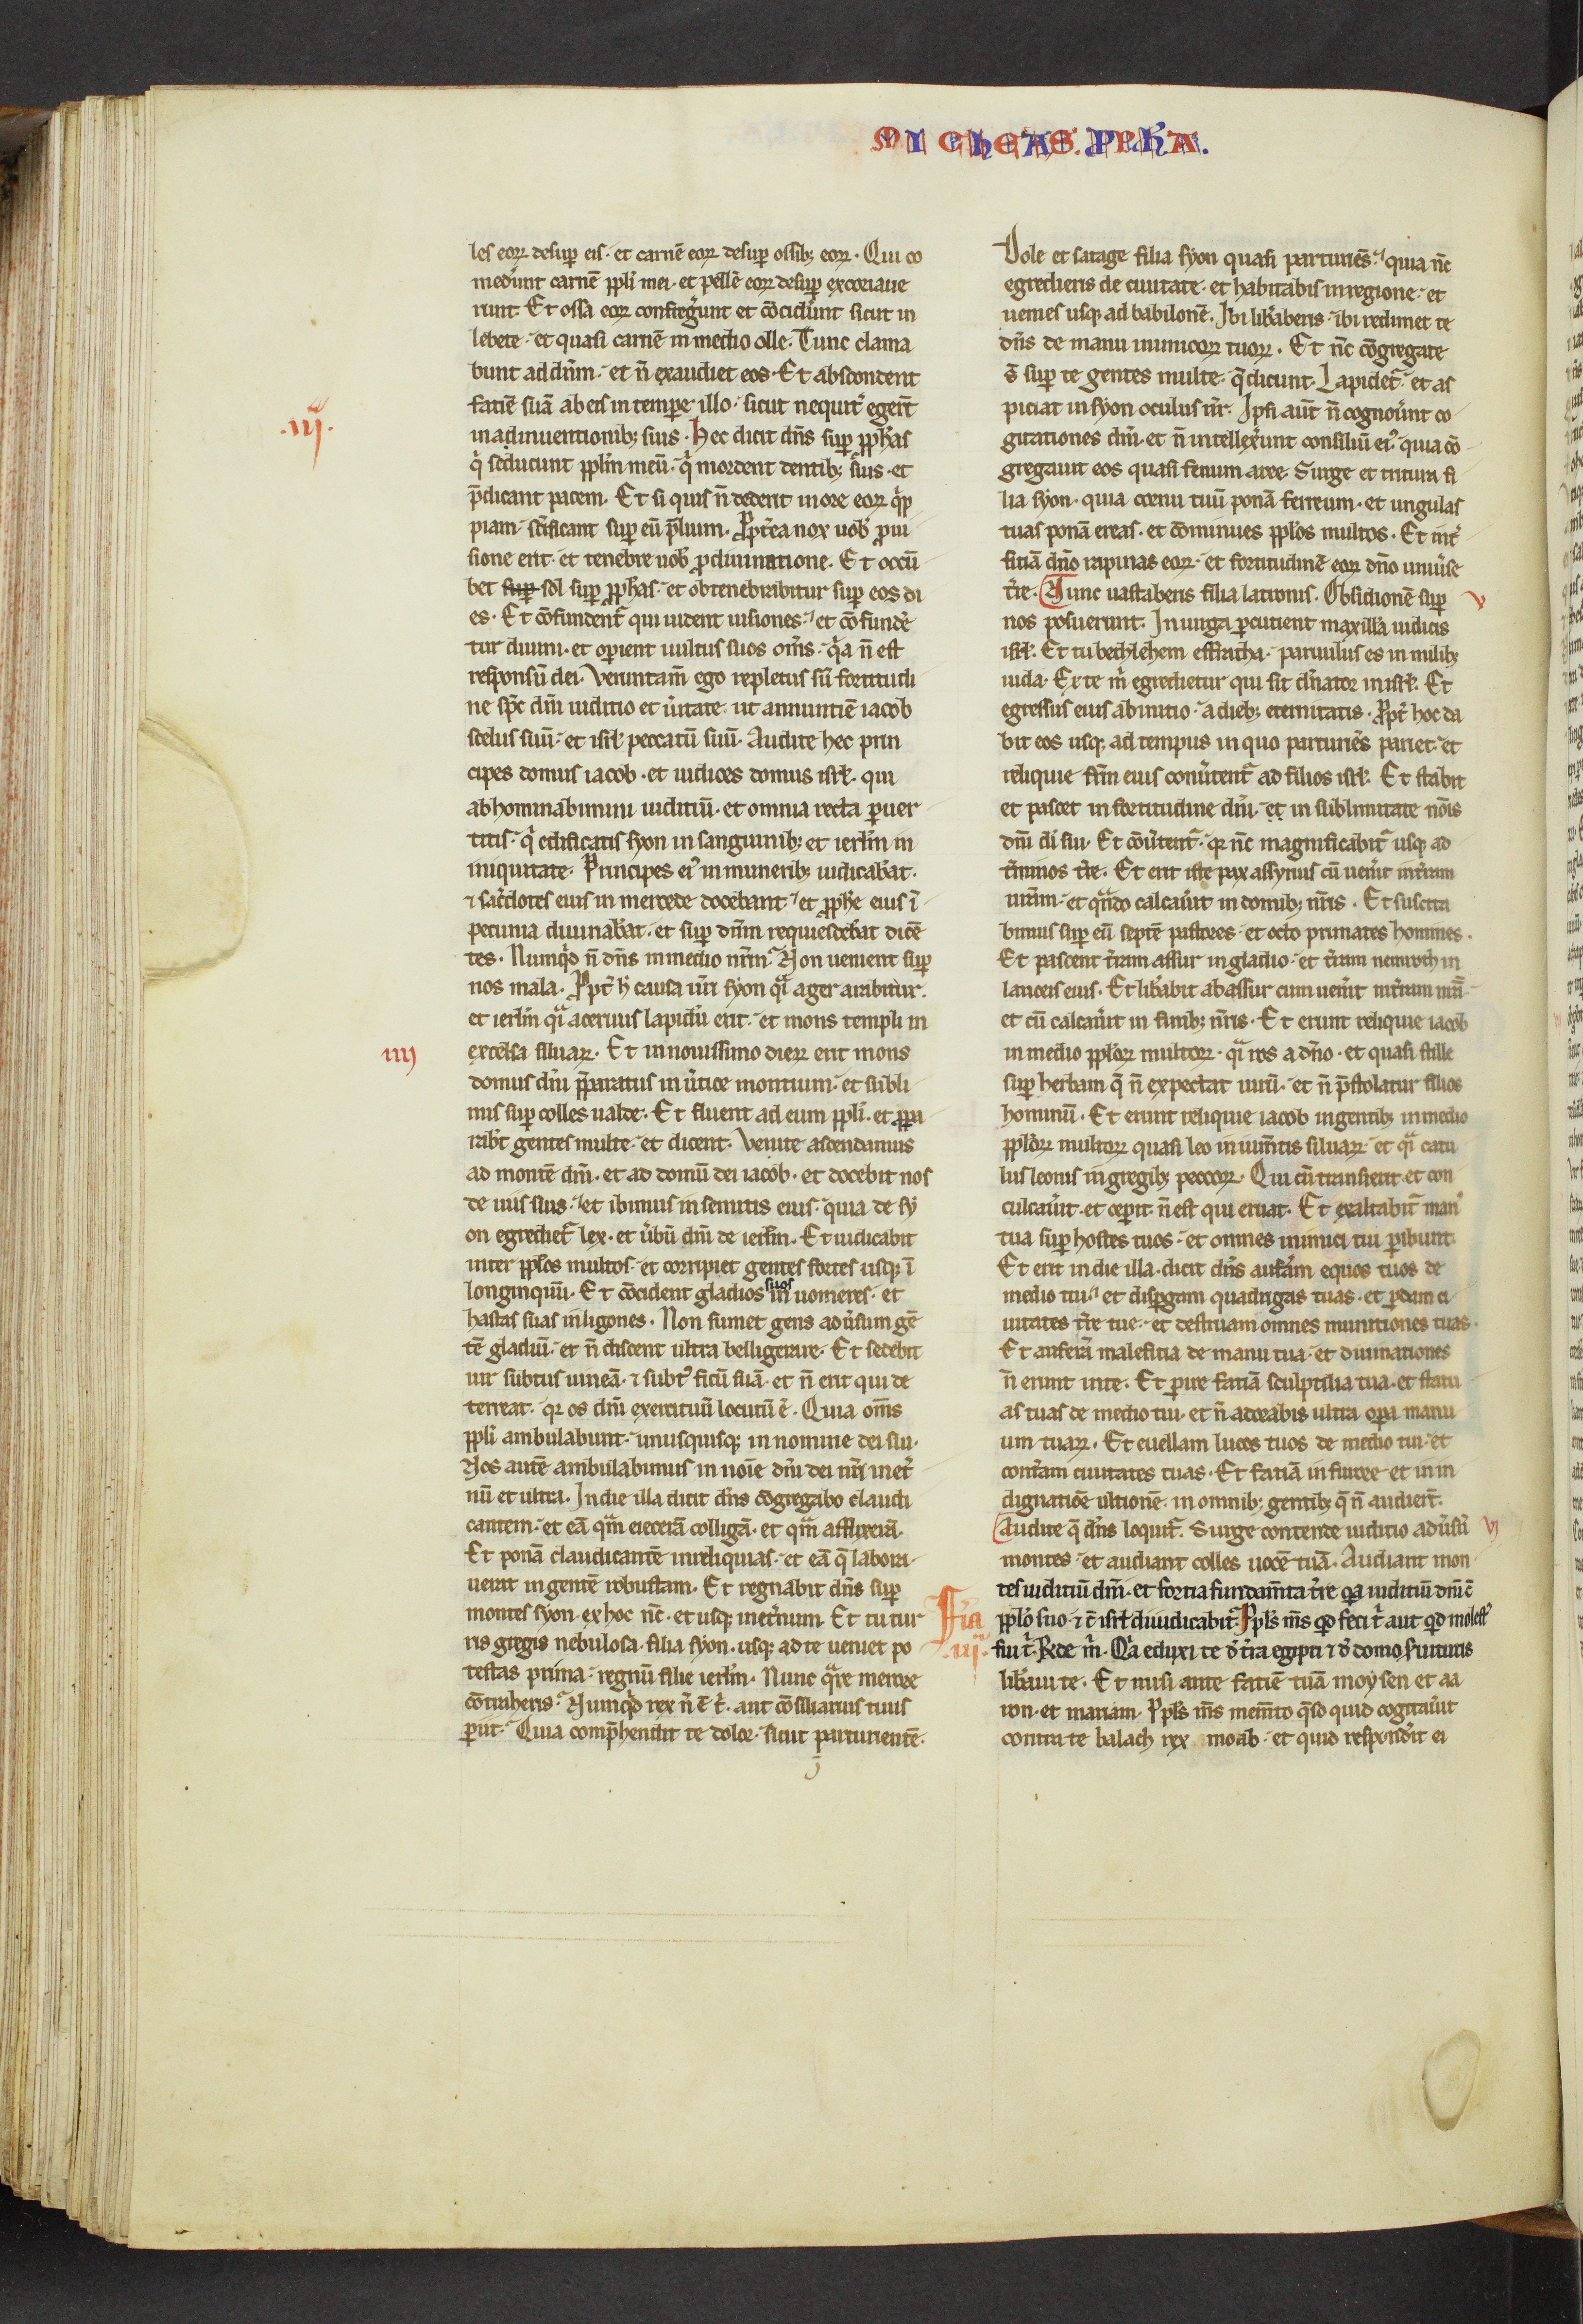 MICHEAS. PPHA.
les eoꝝ desuꝑ eis· et carnē eoꝝ desuꝑ ossibꝫ eoꝝ· Qui co
mederūt carnē ppli mei· et pellē eoꝝ desuꝑ excoriaue
runt· Et ossa eoꝝ confregerunt et cōciderunt sicut in
lebete· et quasi carnē in medio olle· Tunc clama
bunt ad dn̄m· et n̄ exaudiet eos· Et abscondent
faciē suā ab eis in tempe illo· sicut nequit̉ egert̄
inadinuentionibꝫ suis· Hec dicit dn̄s suꝑ ꝓphas
.iij.
q̇ seducunt pplm̄ meū· q̇ mordent dentibꝫ suis· et
p̄dicant pacem· Et si quis n̄ dederit in ore eoꝝ q̇p
piam· sc̄ificant suꝑ eū p̄lium· Propt̉ea nox uob̄ ꝓ ui
sione erit· et tenebre uob̄ ꝓ diuinatione· Et occū
bet suꝑ sol suꝑ ꝓphas· et obtenebrabitur suꝑ eos di
es· Et cōfundent᷑ qui uident uisiones· et cōfundē
tur diuini· et operient uultus suos om̄s· q̇a n̄ est
responsū dei· Veruntam̄ ego repletus sū fortitudi
ne sp̄c dn̄i iuditio et u̇tate· ut annuntiē iacob
scelus suū· et isrł peccatū suū· Audite hec prin
cipes domus iacob· et iudices domus isrł· qui
abhominabimini iuditiū· et omnia recta ꝑuer
titis· q̇ edificatis syon in sanguinibꝫ et ierłm in
iniquitate· Principes ei᷒ in muneribꝫ iudicabāt·
⁊ sac̉dotes eius in mercede docebant· et ꝓphe eius ī
pecunia diuinabāt· et suꝑ dn̄m requiescebāt dicē
tes· Numqͥd n̄ dn̄s in medio nr̄m· Non uenient suꝑ
nos mala· Ppt̉ h̄ causa ur̄i syon qͣi ager arabitur·
et ierłm qͣi aceruus lapidū erit· et mons templi in
excelsa siluaꝝ· Et in nouissimo dieꝝ erit mons
iiij
domus dn̄i p̄paratus in u̇tice montium· et subli
mis suꝑ colles ualde· Et fluent ad eum ppli· et ꝓpa
rabt̄ gentes multe· et dicent· Venite ascendamus
ad montē dn̄i· et ad domū dei iacob· et docebit nos
de uiis suis· et ibimus in semitis eius· quia de sy
on egrediet᷑ lex· et u̇bū dn̄i de ierłm· Et iudicabit
inter pplos multos· et corripiet gentes fortes usqꝫ ī
longinquū· Et cōcident gladios suos in uomeres· et
hastas suas in ligones· Non sumet gens adu̇sum gē
tē gladiū· et n̄ discent ultra belligerare· Et sedebit
uir subtus uineā· ⁊ subt᷒ ficū suā· et n̄ erit qui de
terreat· qꝛ os dn̄i exercituū locutū ē· Quia om̄s
ppli ambulabunt· unusquisqꝫ in nomine dei sui·
Nos autē ambulabimus in noīe dn̄i dei nr̄i in et̉
nū et ultra· In die illa dicit dn̄s cōgregabo claudi
cantem· et eā qͣm eiecerā colligā· et qͣm afflixerā
Et ponā claudicantē in reliquias· et eā q̄ labora·
uerat in gentē robustam· Et regnabit dn̄s suꝑ
montes syon· ex hoc nc̄· et usqꝫ inet̉num· Et tu tur
ris gregis nebulosa· filia syon· usqꝫ ad te ueniet po
testas prima· regnū filie ierłm· Nunc qͣre merore
cōtraheris· Numqͥd rex n̄ ē t̉· aut cōsiliarius tuus
periit· Quia comp̄hendit te dolor· sicut parturientē·
Dole et satage filia syon quasi parturiēs· quia nc̄
egredieris de ciuitate· et habitabis in regione· et
uenies usqꝫ ad babilonē· Ibi lib̉aberis· ibi redimet te
dn̄s de manu inimicoꝝ tuoꝝ· Et nc̄ cōgregate
s̄ suꝑ te gentes multe· q̄ dicunt· Lapidet᷑· et as
piciat in syon oculus nr̄· Ipsi aūt n̄ cognou̇unt co
gitationes dn̄i· et n̄ intellex̉unt consiliū ei᷒· quia cō
gregauit eos quasi fenum aree· Surge et tritura fi
lia syon· quia cornu tuū ponā ferreum· et ungulas
tuas ponā ereas· et cōminues pplos multos· Et int̉
ficiā dn̄o rapinas eoꝝ· et fortitudinē eoꝝ dn̄o uniu̇se
t̉re· Nunc uastaberis filia latronis· Obsidionē suꝑ
v
nos posuerunt· In uirga ꝑcutient maxillā iudicis
isrł· Et tu bethlehem effratha· paruulus es in milibꝫ
iuda· Ex te m̉ egredietur qui sit dn̄ator in isrł· Et
egressus eius ab initio· a diebꝫ eternitatis· Ppt̉ hoc da
bit eos usqꝫ ad tempus in quo parturiēs pariet· et
reliquie fr̄m eius conu̇tent᷑ ad filios isrł· Et stabit
et pascet in fortitudine dn̄i· et in sublimitate nōis
dn̄i di̇ sui· Et cōu̇tent᷑· qꝛ nc̄ magnificabit᷑ usqꝫ ad
t̉minos t̉re· Et erit iste pax assyrius cū uen̉it in t̉ram
nr̄am· et qͣndo calcau̇it in domibꝫ nr̄is· Et suscita
bimus suꝑ eū septē pastores· et octo primates homines·
Et pascent t̉ram assur in gladio· et t̉ram nemroth in
lanceis eius· Et lib̉abit ab assur cum uen̉it in t̉ram nr̄ā
et cū calcau̇it in finibꝫ nr̄is· Et erunt reliquie iacob
in medio pploꝝ multoꝝ· qͣi ros a dn̄o· et quasi stille
suꝑ herbam q̄ n̄ expectat uirū· et n̄ p̄stolatur filios
hominū· Et erunt reliquie iacob in gentibꝫ in medio
pploꝝ multoꝝ quasi leo in ium̄tis siluaꝝ· et qͣi catu
lus leonis in gregibꝫ pecoꝝ· Qui cū transierit· et con
culcau̇it· et ceperit· n̄ est qui eruat· Et exaltabit᷑ man᷒
tua suꝑ hostes tuos· et omnes inimici tui ꝑibunt·
Et erit in die illa· dicit dn̄s auferam equos tuos de
medio tui· et disꝑgam quadrigas tuas· et ꝑdam ci
uitates t̉re tue· et destruam omnes munitiones tuas·
Et auferā maleficia de manu tua· et diuinationes
n̄ erunt in te· Et ꝑire faciā sculptilia tua· et statu
as tuas de medio tui· et n̄ adorabis ultra oꝑa manu
um tuaꝝ· Et euellam lucos tuos de medio tui· et
cont̉am ciuitates tuas· Et faciā in furore et in in
dignatiōe ultionē· in omnibꝫ gentibꝫ q̄ n̄ audiert̄·
Audite q̄ dn̄s loquit᷑· Surge contende iuditio adu̇sū
vj
montes· et audiant colles uocē tuā· Audiant mon
tes iuditiū dn̄i· et fortia fundam̄ta t̉re qͣa iuditiū dn̄i c̄
Fīa
.iij.
pplo suo· ⁊ c̄ isrł diiudicabit᷑· Ppls m̄s qd feci t̉ aut qd molest᷒
fui t̉· Rn̄de m̉· Qͣa eduxi te d̉ t̉ra egipti ⁊ d̉ domo seruitutis
lib̉aui te· Et misi ante faciē tuā moysen et aa
ron· et mariam· Ppls m̄s mem̄to q̄so quid cogitau̇it
contra te balach rex moab· et quid respondit ei